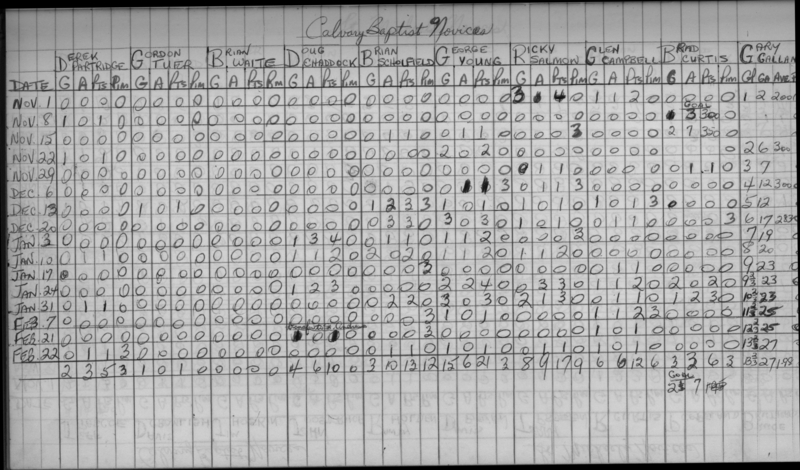 Calvary Baptist Novices
DEREK GORDON BRIAN DOUG BRIAN GEORGE RICKY GLEN BRAD GARY
PARTRIDGE TUER WAITE CHADDOCK SCHOLFIELD YOUNG SALMON CAMPBELL CURTIS
DATE G A Pts Pim G A Pts Pim G A Pts Pim G A Pts Pim G A Pts Pim G A Pts Pim G A Pts Pim G A Pts Pim G A Pts Pim GP GA AVE
NOV. 1 0 0 0 0 0 0 0 0 0 0 0 0 0 0 0 0 0 0 0 0 0 0 0 0 3 1 4 0 1 1 2 0 0 0 0 0 1 2 200
GOAL
NOV. 8 1 0 1 0 0 0 0 0 0 0 0 0 0 0 0 0 0 0 0 0 0 0 0 0 0 0 0 0 0 0 0 0 3 300 0
NOV. 15 0 0 0 0 0 0 0 0 0 0 0 0 0 0 0 0 0 1 1 0 0 1 1 0 0 0 0 3 0 0 0 0 2 7 350 0
NOV. 22 1 0 1 0 0 0 0 0 0 0 0 0 0 0 0 0 0 0 0 0 2 0 2 0 0 0 0 0 0 0 0 0 2 6 300
NOV. 29 0 0 0 0 0 0 0 0 0 0 0 0 0 0 0 0 0 0 0 0 0 0 0 0 0 1 1 0 0 0 0 0 0 1 1 0 3 7
DEC. 6 0 0 0 0 0 0 0 0 0 0 0 0 0 0 0 0 0 0 0 0 0 1 1 3 0 1 1 3 0 0 0 0 0 0 0 0 4 12 300
DEC. 13 0 0 0 0 1 0 1 0 0 0 0 0 0 0 0 0 1 2 3 3 1 0 1 0 1 0 1 0 1 0 1 3 0 0 0 0 5 12
DEC. 20 0 0 0 0 0 0 0 0 0 0 0 0 0 0 0 0 0 3 3 0 3 0 3 0 1 0 1 0 0 1 1 0 0 0 0 3 6 17
JAN. 3 0 0 0 0 0 0 0 0 0 0 0 0 1 3 4 0 0 1 1 0 1 1 2 0 0 0 0 3 0 0 0 0 0 0 0 0 7 19
JAN. 10 0 1 1 0 0 0 0 0 0 0 0 0 1 1 2 0 2 0 2 0 1 1 2 0 1 1 2 0 0 0 0 0 0 0 0 0 8 20
JAN. 17 0 0 0 0 0 0 0 0 0 0 0 0 0 0 0 0 0 0 0 0 0 0 0 0 0 0 0 0 1 1 0 0 0 0 0 9 23
JAN. 24 0 0 0 0 0 0 0 0 0 0 0 0 1 2 3 0 0 0 0 0 2 2 4 0 0 3 3 0 1 1 2 0 2 0 2 0 23
JAN. 31 0 1 1 0 0 0 0 0 0 0 0 0 0 0 0 0 0 2 2 0 3 0 3 0 2 1 3 0 0 1 1 0 1 2 3 0 23
FEB. 7 0 0 0 0 0 0 0 0 0 0 0 0 0 0 0 3 1 0 1 0 0 0 0 0 1 1 2 3 0 0 0 0 25
FEB. 21 0 0 0 0 0 0 0 0 0 0 0 0 0 0 0 0 0 3 0 0 0 0 0 0 0 0 1 0 1 0 0 0 0 0 25
FEB. 22 0 1 1 3 0 0 0 0 0 0 0 0 0 0 0 0 0 1 1 0 1 0 1 0 0 1 0 1 0 0 0 0 0 0 0 27
2 3 5 3 1 0 1 0 0 0 0 0 4 6 10 0 3 10 13 12 15 6 21 3 8 9 17 9 6 6 12 6 3 3 6 3 27
GOAL
7